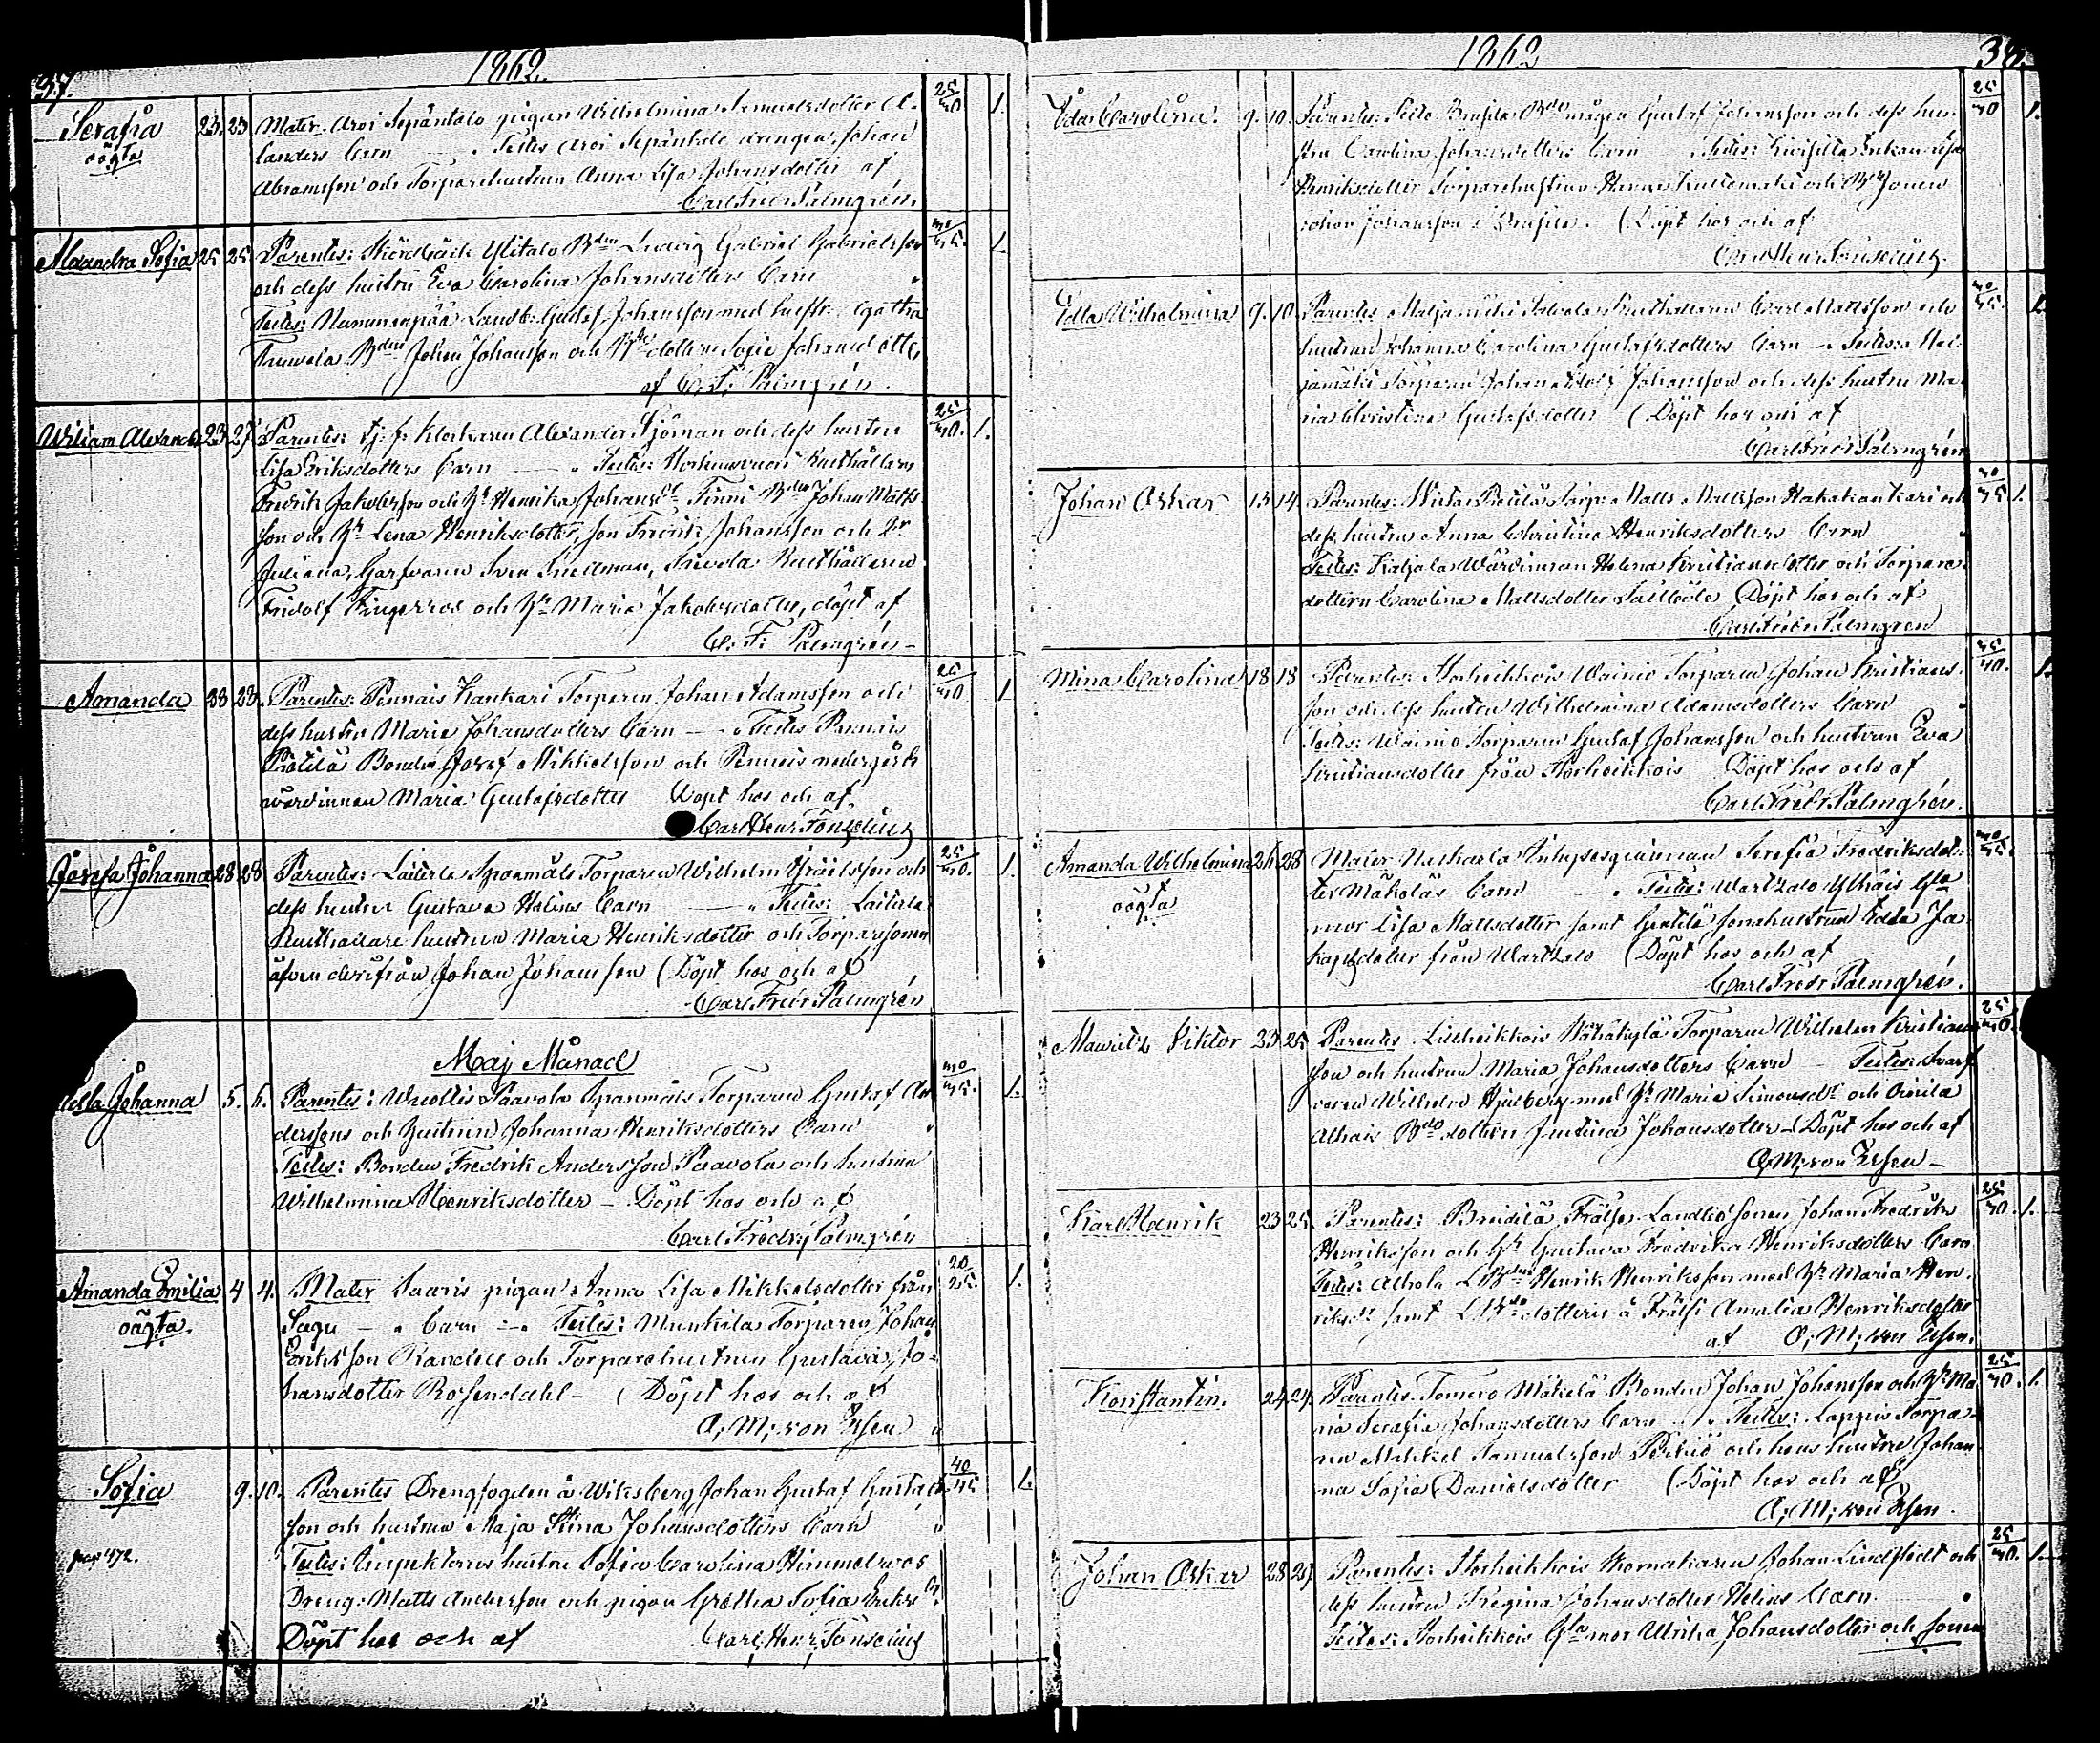 37. 1862.
Serafia 23. 23 Mater. Aroi Sepäntalo pigan Wilhelmina Samuelsdotter
oägta landers Barn Testes Aroi Sepäntalo drengen Johan 25/30 1.
Abramsson och Torparehustrun Anna Lisa Johansdotter af
Carl Fredr Palmgrén.
Alexandra Sofia 25 25 Parentes: Ylitalo Bden Ludvig Gabriel Gabrielsson 30/35. 1
och dess hustru Eva Carolina Johansdotters Barn
Testes: Nummenpää Landb: Gustaf Johansson med hustr. Agatha
Bden Johan Johansson och Bdedottern Sofia Johansdotter,
af C. F. Palmgrén.
Wiliam Alexander 23 27 Parentes: Klockaren Alexander Sjöman och dess hustru 25/30. 1.
Lisa Eriksdotters Barn Testes: Rusthållaren
Fredrik Jakobsson och Hr Henrika Johansdr Finni Bden Johan Matts
son och Hr Lena Henriksdotter, son Fredrik Johansson och
Juliana, Garfvaren Sven Snellman, Rusthållaren
Fridolf och Hr Maria Jakobsdotter, döpt af
C. F. Palmgrén
Amanda 28 28. Parentes: Pennais Kankari Torparen Johan Adamsson och 25/30 1
dess hustru Maria Johansdotters Barn Testes Pennais
Prättälä Bonden Josef Mikkelsson och Pennais nedergårds
wärdinnan Maria Gustafsdotter Döpt hos och af
Carl Henr Fonselius
Josefa Johanna 28 28 Parentes: Laiterla Spanmåls Torparen Wilhelm Israelsson och 25/30. 1.
dess hustru Gustava Helins Barn Testes: Laiterla
Rusthållare hustrun Maria Henriksdotter och Torparesonen
äfven derifrån Johan Johansson (Döpt hos och af
Carl Fredr Palmgrén
Maj Månad
Johanna 5. 6. Parentes: Paavola Spanmåls Torparen Gustaf An 30/35. 1.
derssons och hustrun Johanna Henriksdotters Barn
Testes: Bonden Fredrik Andersson Paavola och hustrun
Wilhelmina Henriksdotter – Döpt hos och af
Carl Fredr. Palmgrén
Amanda Emilia 4 4. Mater Saaris pigan Anna Lisa Mikkelsdotter från 20/25. 1.
oägta. Sagu – Barn – Testes: Munkila Torparen Johan
Eriksson Randell och Torparehustrun Gustava Jo-
hansdotter Rosendahl – (Döpt hos och af
A, M, von Essen
Sofia 9. 10. Parentes Drengfogden å Wiksberg Johan Gustaf Gustafs 40/45 1.
son och hustrun Maja Stina Johansdotters Barn
pag 472. Testes: Inspektorns hustru Sofia Carolina Himmelroos
Dreng. Matts Andersson och pigan Gretha Sofia Eriksdr.
Döpt hos och af Carl, Henr, Fonselius
1862 38.
Ida Carolina. 9. 10. Parentes: Bdemågen Gustaf Johansson och dess hus- 25/30 1.
tru Carolina Johansdotters Barn Testes:
Henriksdotter Torparehustrun och Bdesonen
Johan Johansson. (Döpt hos och af
Carl Henr Fonselius.
Edla Wilhelmina 9. 10 Parentes Maljamäki Rusthållaren Carl Mattsson och 30/35. 1.
hustrun Johanna Carolina Gustafsdotters Barn – Testes: Mal-
jamäki Torparen Johan Adolf Johansson och dess hustru Ma-
ria Christina Gustafsdotter (Döpt hos och af
Carl Fredr Palmgrén
Johan Oskar. 13 14. Parentes: Prättälä Torp: Matts Mattsson Hakakankari och 30/35 1.
dess hustru Anna Christina Henriksdotters Barn
Testes: Katjala Wärdinnan Helena Kristiansdotter och Torpare-
dottern Carolina Mattsdotter Döpt hos och af
Carl Fredr Palmgren
Mina Carolina 18 18 Parentes: Storheikkois Wainio Torparen Johan Kristians- 35/40. 1.
son och dess hustru Wilhelmina Adamsdotters Barn
Testes: Wainio Torparen Gustaf Johansson och hustrun Eva
Kristiansdotter från Storheikkois Döpt hos och af
Carl Fredr Palmgrén.
Amanda Wilhelmina 26 28 Mater Inhysesqvinnan Serafia Fredriksdot- 30/35.
oägta ter Mäkeläs Barn Testes: Wartsalo Gla
mor Lisa Mattsdotter samt sonahustrun Edla Ja-
kapsdotter från Wartsalo (Döpt hos och af
Carl Fredr Palmgrén.
Mauritz Viktor 23 25 Parentes Lillheikkois Torparen Wilhelm Kristians 25/30.
son och hustrun Maria Johansdotters Barn Testes: Svarf
varen Wilhelm Hjulberg med Hr Maria Simonsdr och
Bdedottern Justina Johansdotter – Döpt hos och af
A, M, von Essen –
Karl Henrik 23 25. Parentes: Frälse Landbosonen Johan Fredrik 25/30. 1.
Henriksson och Hr Gustava Fredrika Henriksdotters Barn
Testes: Alhola LBden Henrik Henriksson med Hr Maria Hen-
riksdr samt LBdedottern å Frälsi Amalia Henriksdotter
af A, M, von Essen.
Konstantin. 24. 27. Parentes. Tomero Mäkelä Bonden Johan Johansson och Hr Ma 25/30. 1.
ria Serafia Johansdotters Barn Testes: Lappis Torpa-
ren Mikkel Samuelsson och hans hustru Johan
na Sofia Danielsdotter (Döpt hos och af
A, M, von Essen.
Johan Oskar 28 29 Parentes: Storheikkois Johan Lindstedt och 25/30. 1.
dess hustru Regina Johansdotter Helins Barn
Testes: Storheikkois Gla mor Ulrika Johansdotter och sonen